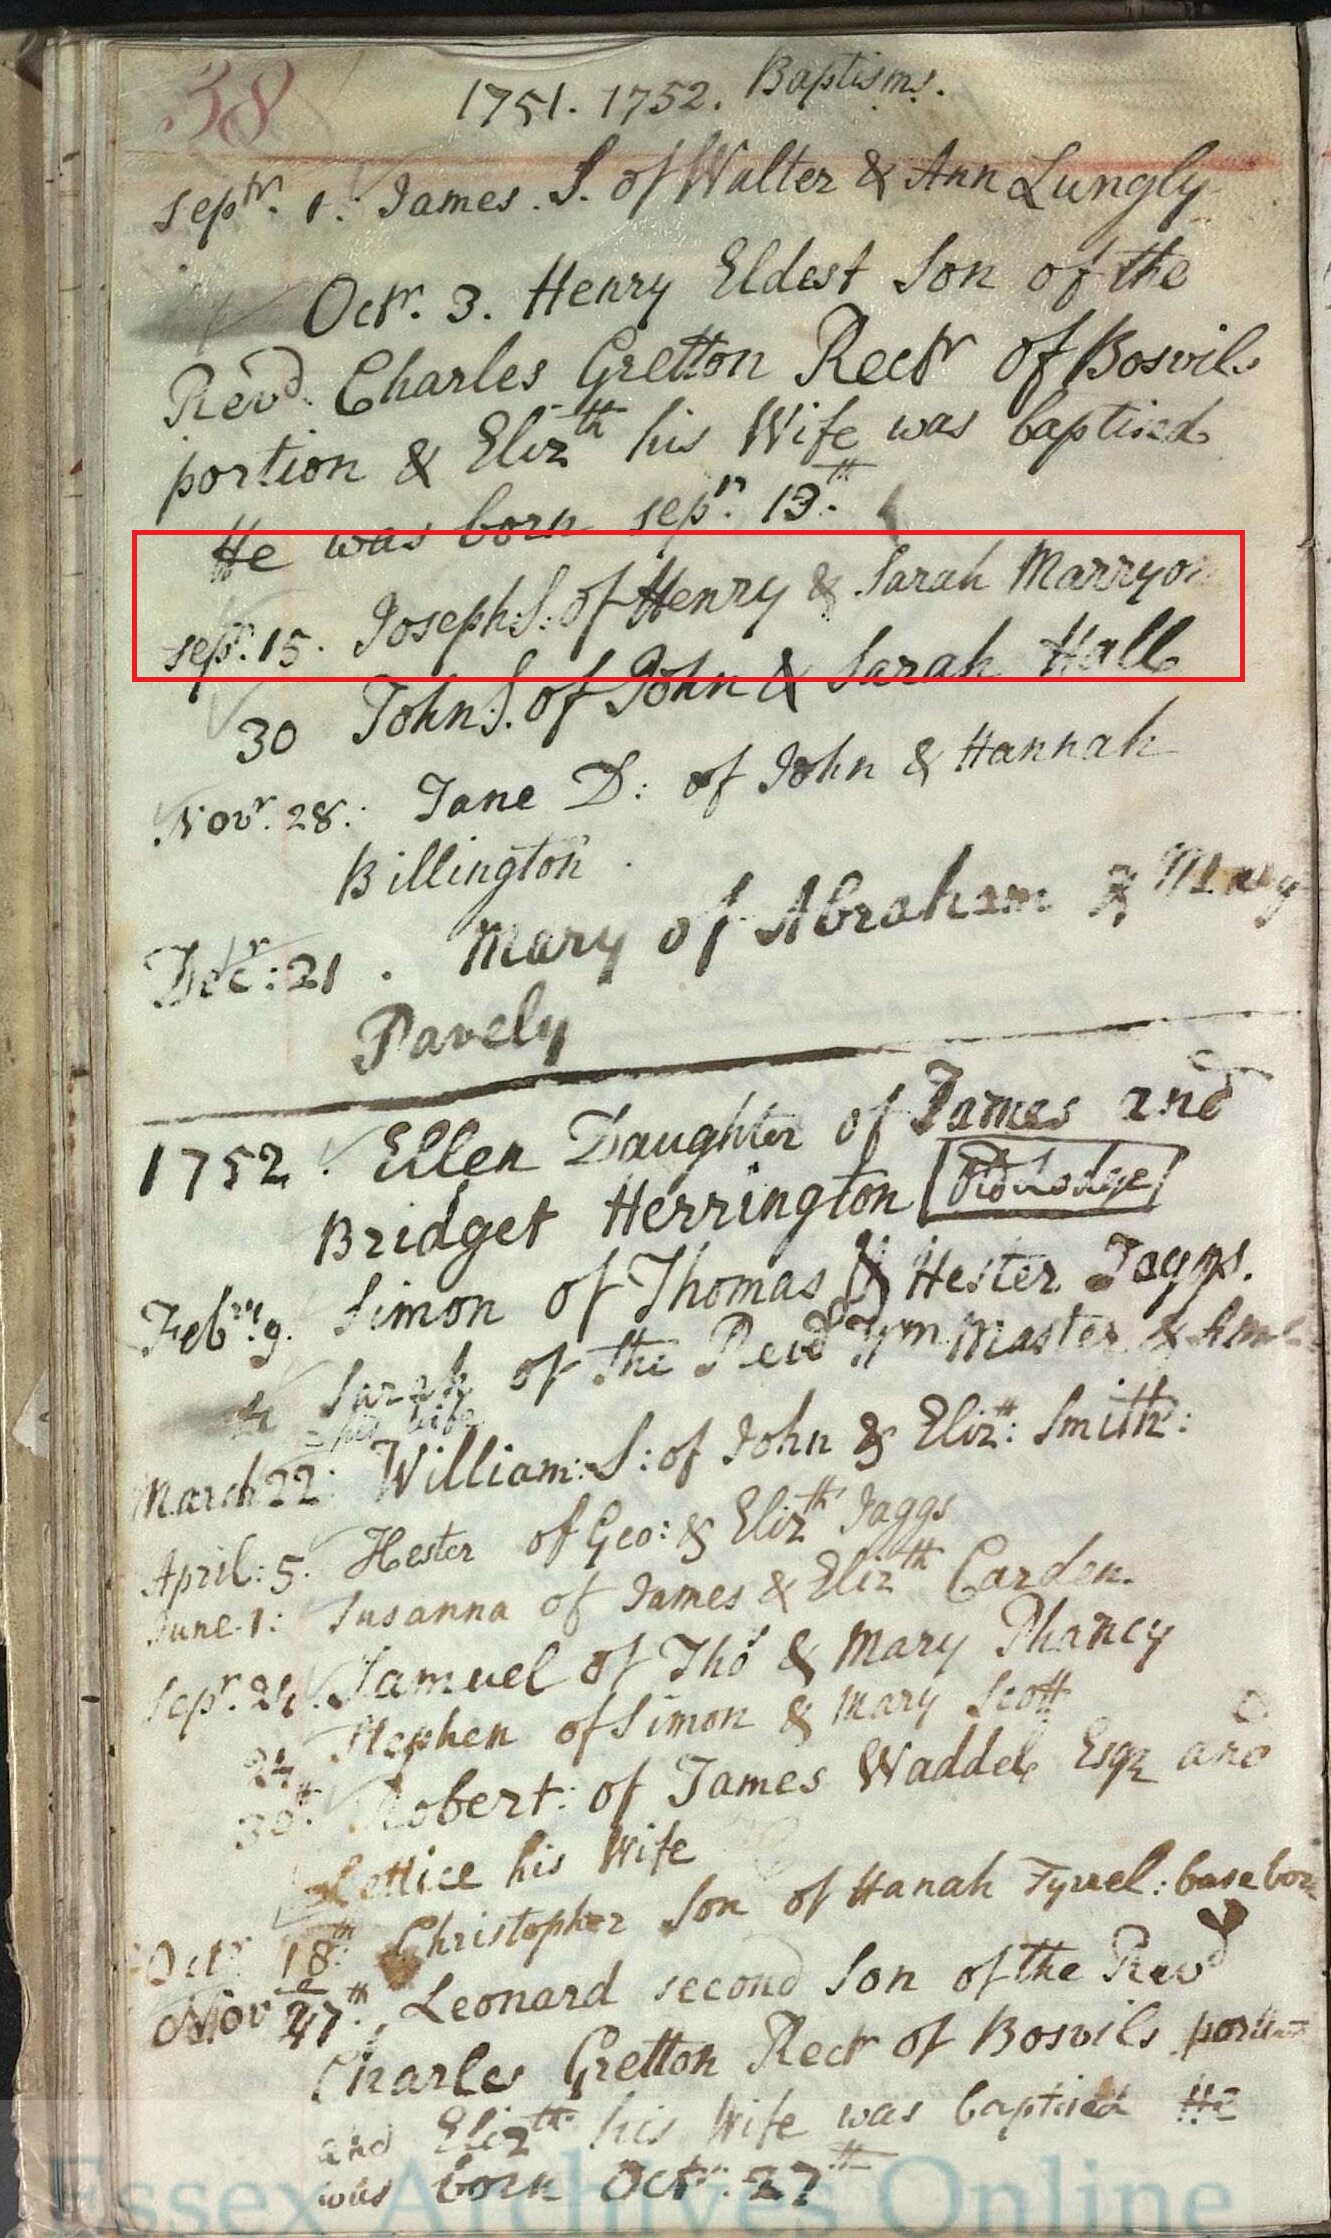 38
1751. 1752. Baptisms.
Septr. 1: James. S. of Walter & Ann Lungly
Octr. 3. Henry Eldest Son of the
Revd. Charles Gretton Rectr of Bosvils
portion & Elizth his Wife was baptised
He was born sepr. 13th.
sepr. 15. Joseph: S: of Henry & Sarah Marryon
30 John S. of John & Sarah Hall
Novr. 28: Jane D: of John & Hannah
Billington
Decr: 21. Mary of Abraham & Mary
Pavely
1752. Ellen Daughter of James and
Bridget Herrington Old Lodge
Febry. 9. Simon of Thomas & Hester Jaggs.
Sarah of the Revd Wm Master &
his wife
March 22: William: S: of John & Elizth: Smith:
April: 5. Hester of Geo: & Elizth Jaggs
June 1: Susanna of James & Elizth Carden.
Sepr. 24. Samuel of Thos & Mary Phancy
24 Stephen of Simon & Mary Scott
30th. Robert: of James Waddel Esqr and
Lettice his Wife
Octr 18th: Christopher Son of Hanah Tyrrel: base born
Nov 27th., Leonard second Son of the Revd
Charles Gretton Rectr of Bosvils portion
and Elizth his Wife was baptised He
was born Octr. 27th
Essex Archives Online